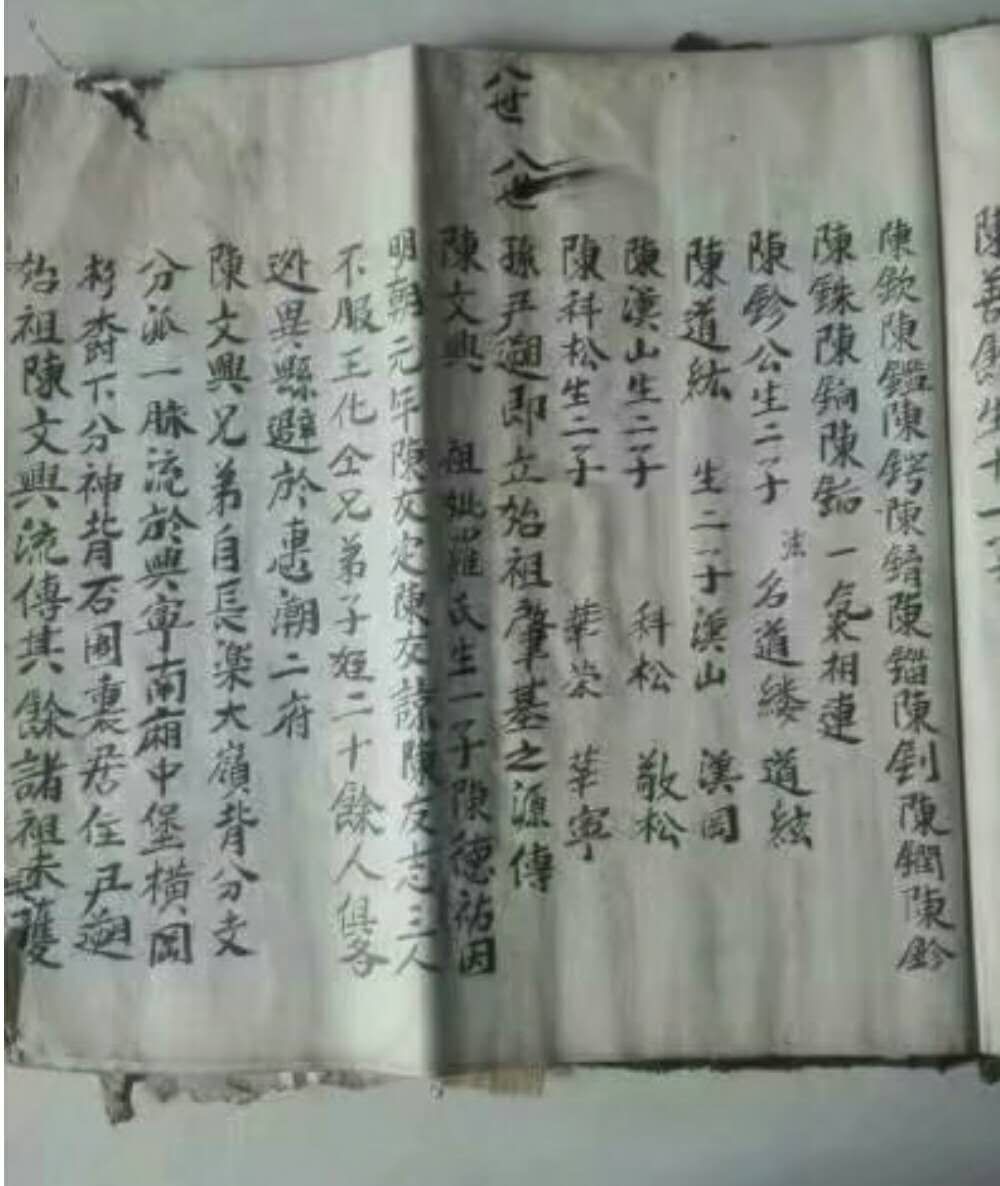 陳善
生十一子
陳欽陳鑑陳鍔陳錆陳錙陳釗陳鐗陳鈴
陳銖陳銁陳銗一氣相連
陳鈴公生二子 法名道縷 道紘
陳道紘 生二子漢山 漢岡
陳漢山生二子 科松 敬松
陳科松生二子 華榮 華寧
八世 孫尹遡即立始祖肇基之源傳
八世 陳文興 祖妣羅氏生一子陳德祐因
明朝元年陳友定陳友諒陳友志三人
不服王化仝兄弟子姪二十餘人俱各
迯異縣避於惠潮二府
陳文興兄弟自長楽大嶺背分支
分派一脉流於興寧南廂中堡橫岡
下分神背石圍裏居住尹遡
始祖陳文興流傳其餘諸祖未獲